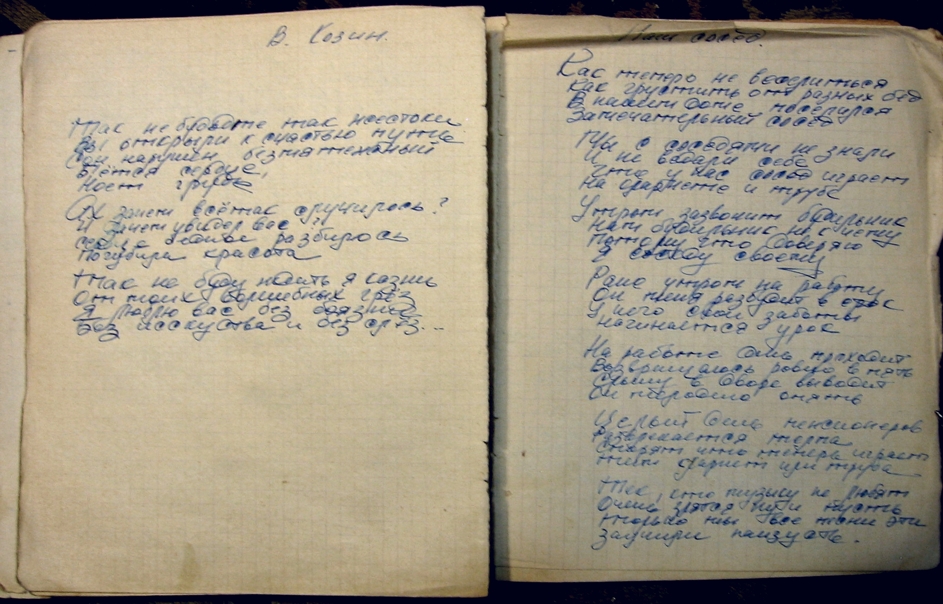 В. Козин.
Так не будьте так жестоки
Вы открыли к счастью путь
Сон нарушен безмятежный
Бьётся сердце,
Ноет грудь
Ах зачем всё так случилось?
И зачем увидел вас?
разбилось
Погубила красота
Так не буду ждать я казни
От моих волшебных грёз
Я люблю вас без боязни
Без исскуства и без слёз...
Наш сосед.
Как теперь не веселиться
Как грустить от разных бед
В нашем доме поселился
Замечательный сосед
Мы с соседями не знали
И не ведали себе
Что у нас сосед играет
На кларнете и трубе
Утром зазвонит будильник
Наш будильник ни к чему
Потому что доверяю
Я соседу своему
Рано утром на работу
Он меня разбудит в срок
У него свои заботы
Начинается урок
На работе день проходит
Возвращаюсь ровно в пять
Слышу в дворе выводит
Он мелодию опять
Целый день пенсионеров
Развлекается толпа
Спорят что теперь играет
Там кларнет или труба
Тех, кто музыку не любят
Очень злятся ну и пусть
Только мы все песни эти
Заучили наизусть.